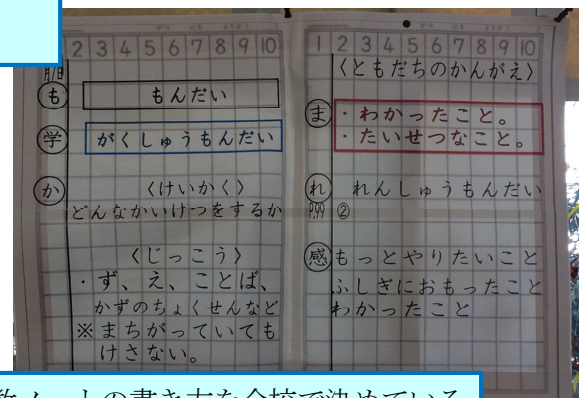 2 3 4 5 6 7 8 9 10
月/日
も もんだい
学 がくしゅうもんだい
か 〈けいかく〉
どんなかいけつをするか
〈じっこう〉
・ず、え、ことば、
かずのちょくせんなど
※まちがっていても
けさない。
1 2 3 4 5 6 7 8 9 10
〈ともだちのかんがえ〉
ま ・わかったこと。
・たいせつなこと。
れ れんしゅうもんだい
P.99 ②
感 もっとやりたいこと
ふしぎにおもったこと
わかったこと
ノートの書き方を全校で決めている